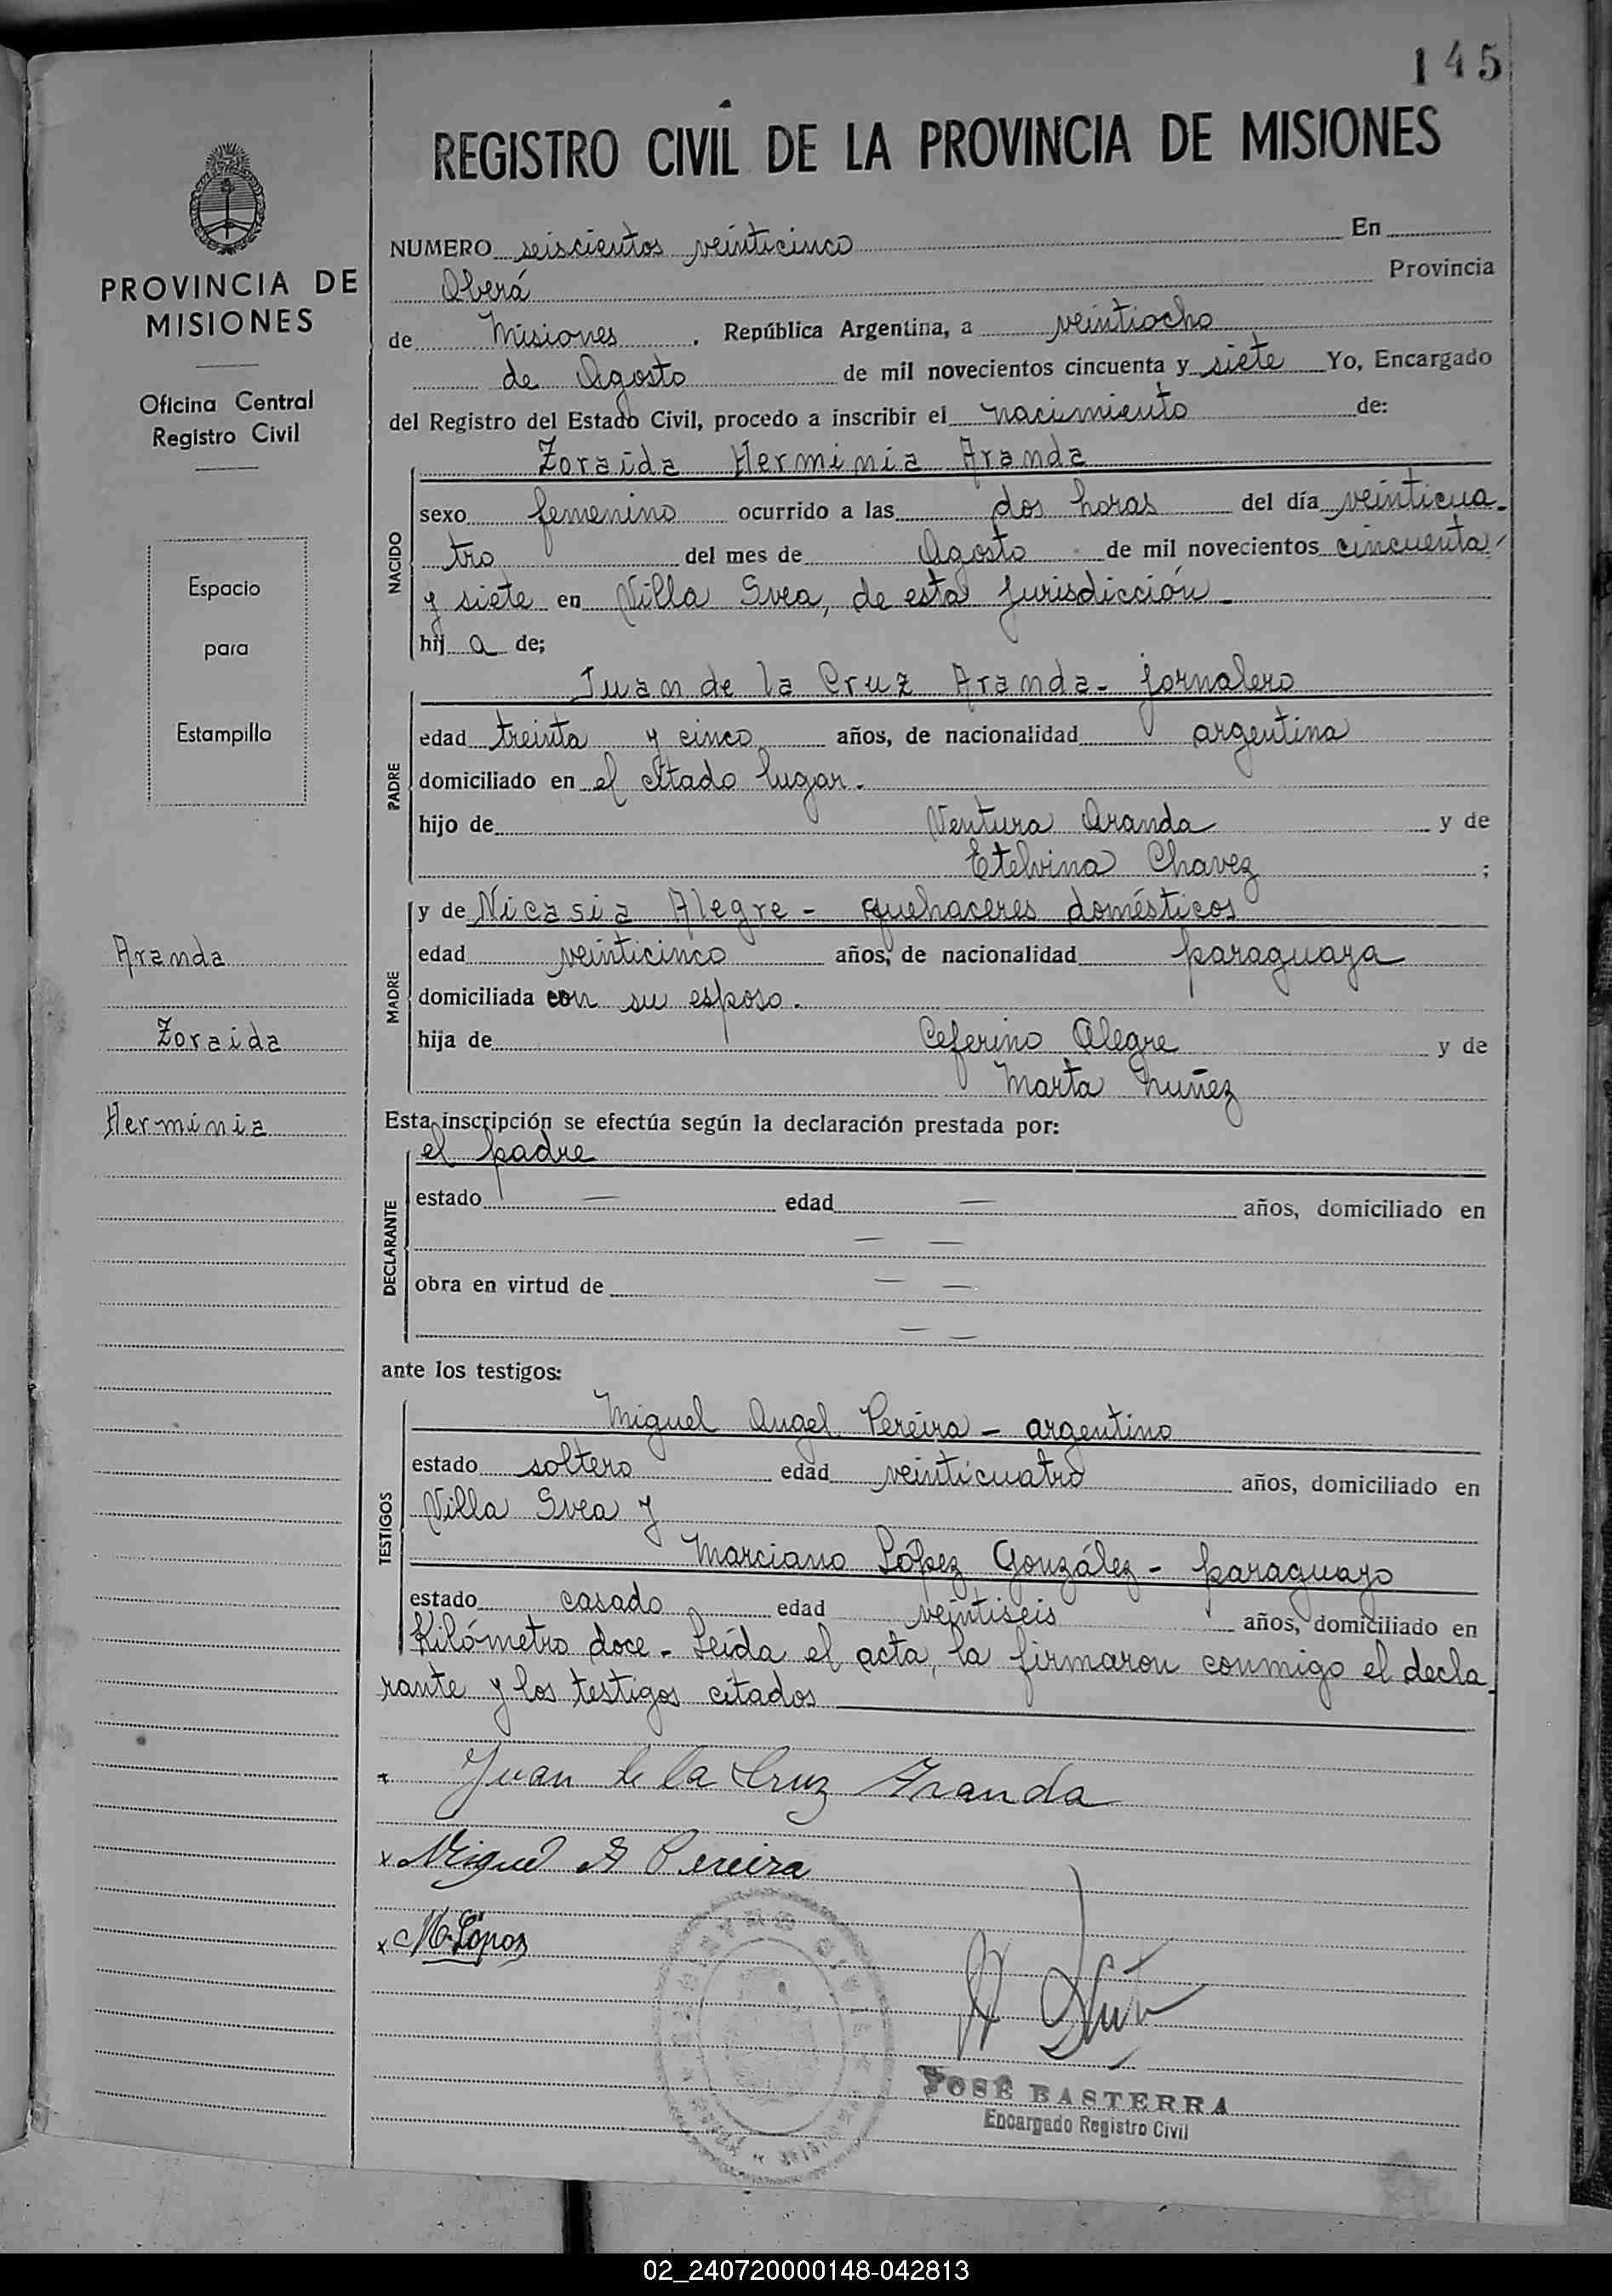 145
REGISTRO CIVIL DE LA PROVINCIA DE MISIONES
PROVINCIA DE
MISIONES
Oficina Central
Registro Civil
Espacio
para
Estampilla
Aranda
Zoraida
Herminia
NUMERO seiscientos veinticinco En
Oberá Provincia
de Misiones, República Argentina, a veintiocho
de Agosto de mil novecientos cincuenta y siete Yo, Encargado
del Registro del Estado Civil, procedo a inscribir el nacimiento de:
Zoraida Herminia Aranda
NACIDO
sexo femenino ocurrido a las dos horas del día veinticua-
tro del mes de Agosto de mil novecientos cincuenta
y siete en Villa Svea, de esta jurisdicción.
hij a de;
Juan de la Cruz Aranda - jornalero
PADRE
edad treinta y cinco años, de nacionalidad argentina
domiciliado en el citado lugar.
hijo de Ventura Aranda y de
Etelvina Chavez ;
y de Nicasia Alegre - quehaceres domésticos
MADRE
edad veinticinco años, de nacionalidad paraguaya
domiciliada con su esposo.
hija de Ceferino Alegre y de
Marta Nuñez
Esta inscripción se efectúa según la declaración prestada por:
el padre
DECLARANTE
estado — edad — años, domiciliado en
— —
obra en virtud de — —
— —
ante los testigos:
Miguel Angel Pereira - argentino
TESTIGOS
estado soltero edad veinticuatro años, domiciliado en
Villa Svea y
Marciano López González - paraguayo
estado casado edad veintiseis años, domiciliado en
Kilómetro doce - Leída el acta, la firmaron conmigo el decla-
rante y los testigos citados
x Juan de la Cruz Aranda
x Miguel A Pereira
x M. López
JOSÉ BASTERRA
Encargado Registro Civil
02_240720000148-042813